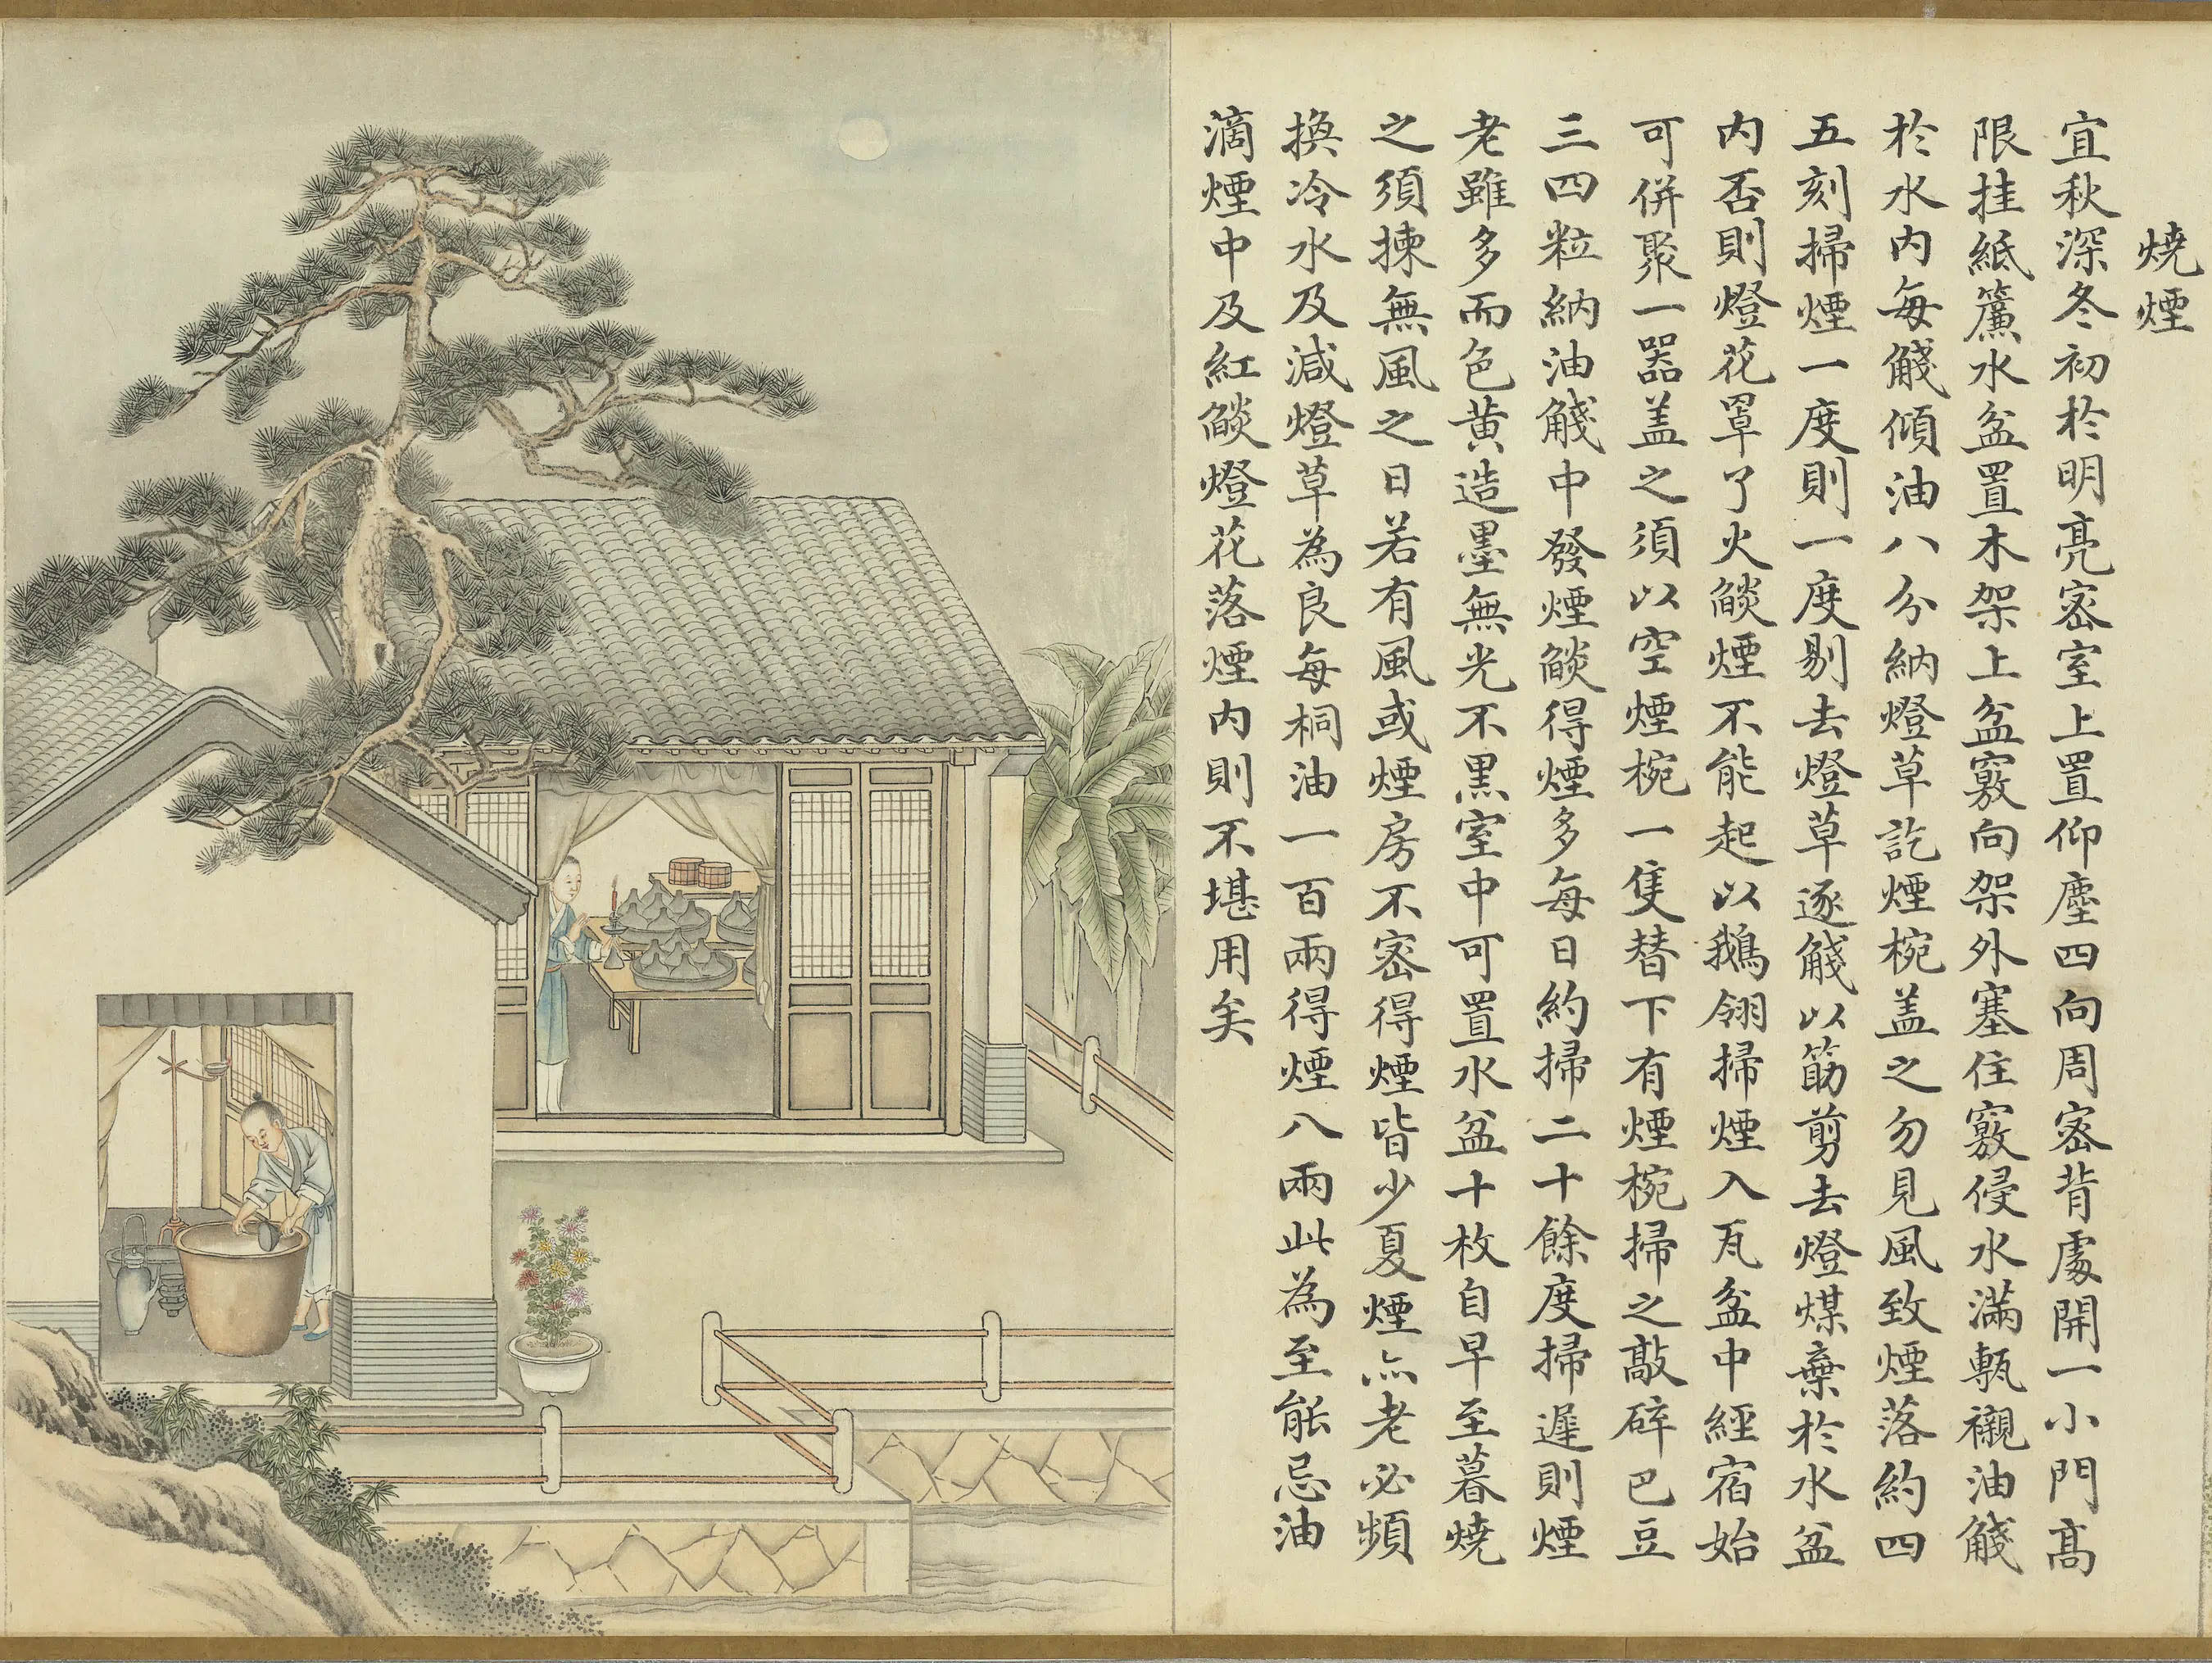 燒煙
宜秋深冬初於明亮密室上置仰塵四向周密背處開一小門高
限挂紙簾水盆置木架上盆竅向架外塞住竅侵水滿甎襯油䤼
於水內每䤼傾油八分納燈草訖煙椀盖之勿見風致煙落約四
五刻掃煙一度則一度剔去燈草逐䤼以筯剪去燈煤棄於水盆
內否則燈花罩了火燄煙不能起以鵝翎掃煙入瓦盆中經宿始
可併聚一器盖之須以空煙椀一隻替下有煙椀掃之敲碎巴豆
三四粒納油䤼中發煙燄得煙多每日約掃二十餘度掃遲則煙
老雖多而色黃造墨無光不黑室中可置水盆十枚自早至暮燒
之須揀無風之日若有風或煙房不密得煙皆少夏煙亦老必頻
換冷水及減燈草為良每桐油一百兩得煙八兩此為至能忌油
滴煙中及紅燄燈花落煙內則不堪用矣